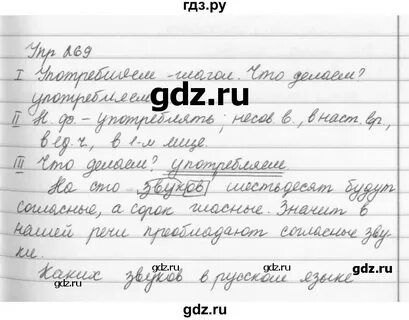 гдз.ру
Упр 269
I Употребляем - глагол. Что делаем?
употребляем
gdz.ru
II Н. ф. - употреблять; несов в., в наст. вр.,
в ед. ч., в 1-м лице.
III Что делаем? употребляем
На сто звуков шестьдесят будут
согласные, а сорок гласные. Значит в
нашей речи преобладают согласные зву
ки.
gdz.ru
Каких звуков в русском языке
гдз.ру